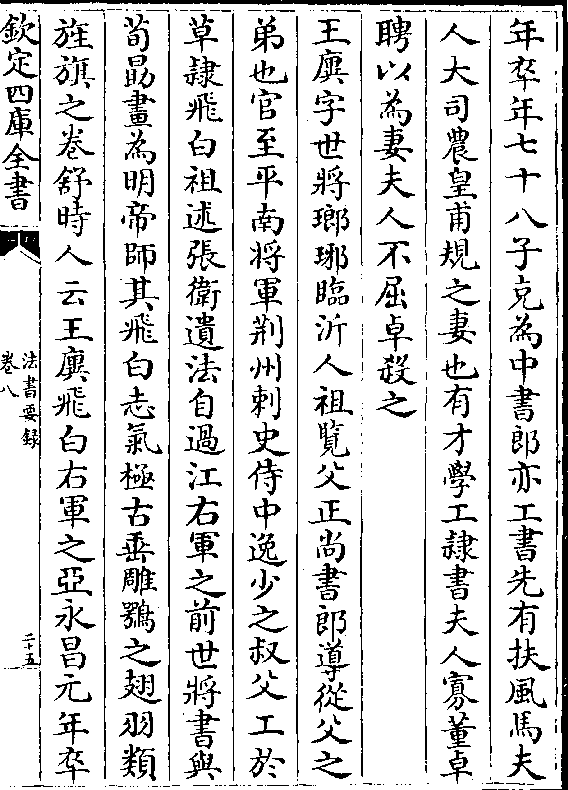 年卒年七十八子克為中書郎亦工書先有扶風馬夫
人大司農皇甫規之妻也有才學工隷書夫人寡董卓
聘以為妻夫人不屈卓殺之
王廙字世將瑯琊臨沂人祖覽父正尚書郎導從父之
弟也官至平南將軍荆州刺史侍中逸少之叔父工於
草隷飛白祖述張衛遺法自過江右軍之前世將書與
荀勗畫為明帝師其飛白志氣極古垂雕鶚之翅羽類
旌旗之卷舒時人云王廙飛白右軍之亞永昌元年卒
欽定四庫全書
法書要錄
卷八
二十五